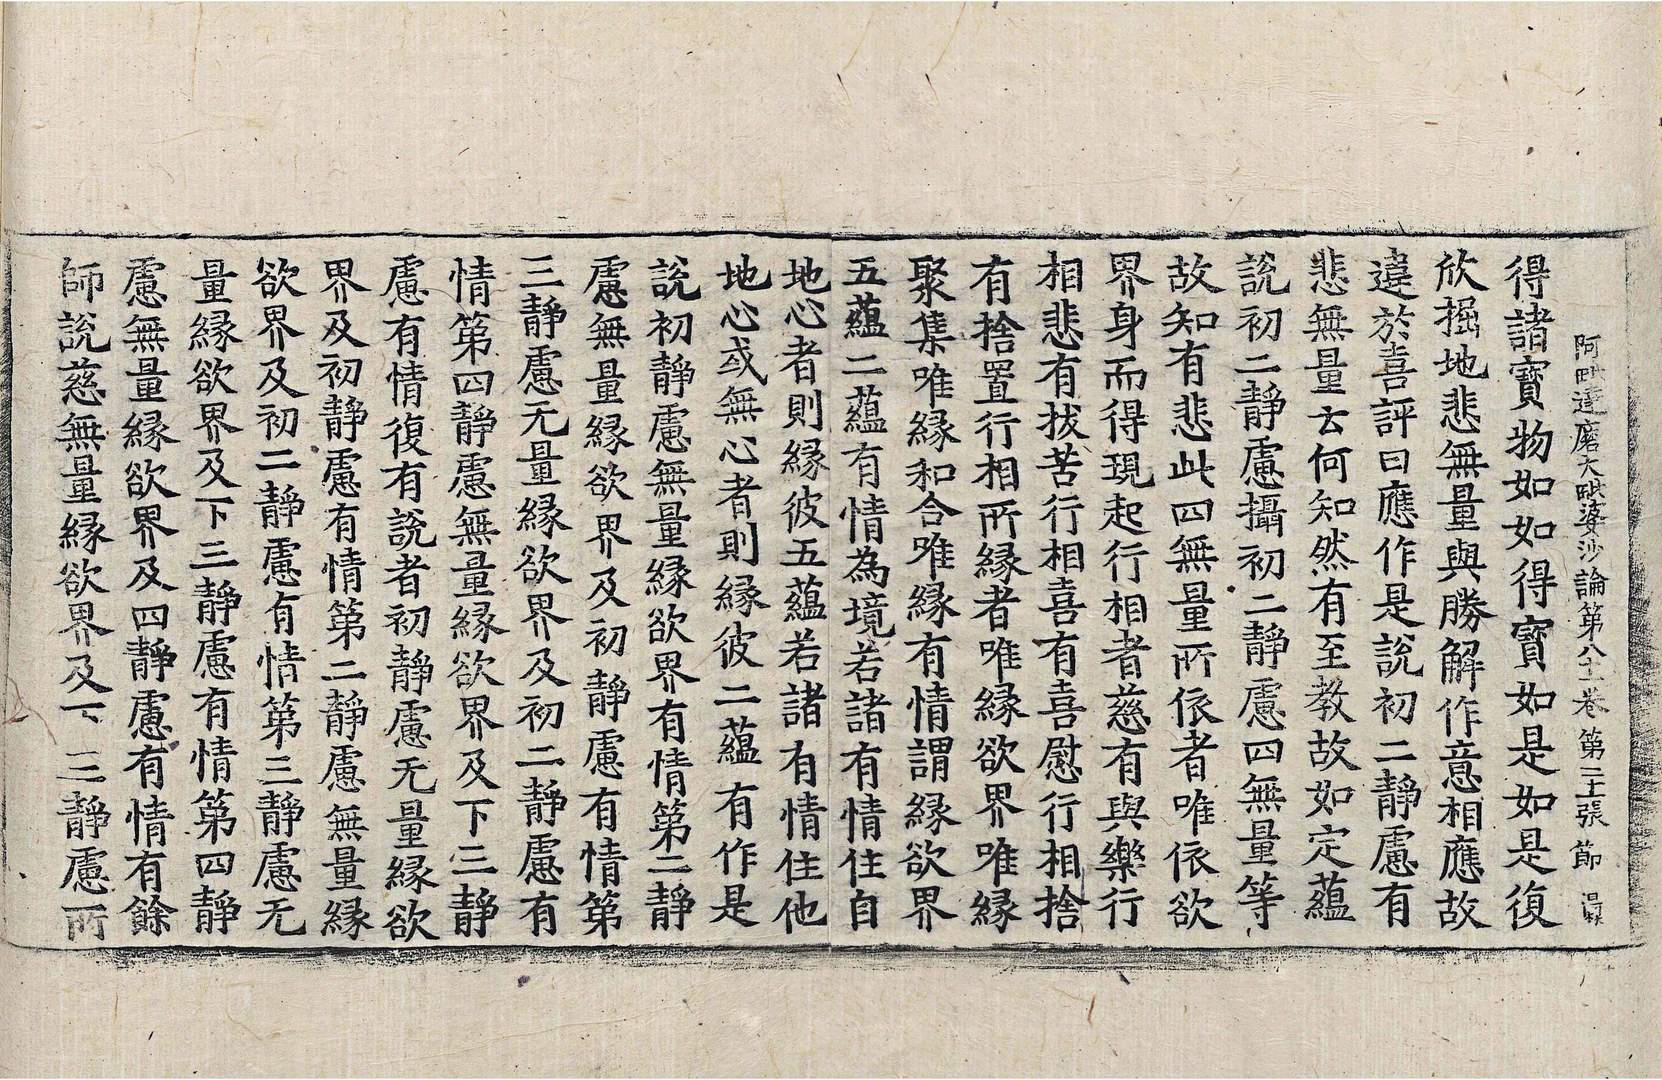 阿毗達磨大毗婆沙論第八十二卷 第二十張 節
得諸寶物如如得寶如是如是復
欣掘地悲無量與勝解作意相應故
違於喜評曰應作是說初二靜慮有
悲無量云何知然有至教故如定蘊
說初二靜慮攝初二靜慮四無量等
故知有悲此四無量所依者唯依欲
界身而得現起行相者慈有與樂行
相悲有拔苦行相喜有喜慰行相捨
有捨置行相所緣者唯緣欲界唯緣
聚集唯緣和合唯緣有情謂緣欲界
五蘊二蘊有情為境若諸有情住自
地心者則緣彼五蘊若諸有情住他
地心或無心者則緣彼二蘊有作是
說初靜慮無量緣欲界有情第二靜
慮無量緣欲界及初靜慮有情第
三靜慮无量緣欲界及初二靜慮有
情第四靜慮無量緣欲界及下三靜
慮有情復有說者初靜慮无量緣欲
界及初靜慮有情第二靜慮無量緣
欲界及初二靜慮有情第三靜慮无
量緣欲界及下三靜慮有情第四靜
慮無量緣欲界及四靜慮有情有餘
師說慈無量緣欲界及下三靜慮所